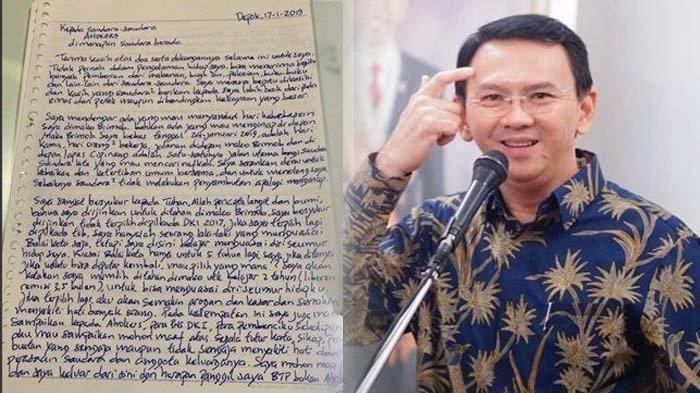 Depok, 17-1-2019
Kepada saudara-saudara
AHOKERS
dimanapun saudara berada.
Terima kasih atas doa serta dukungannya selama ini untuk saya.
Tidak pernah dalam pengalaman hidup saya, bisa menerima begitu
banyak pemberian dari makanan, buah 2an, pakaian, buku-buku
dan lain-lain dari saudara-saudara. Saya merasa begitu dikasihi
dan kasih yang saudara2 berikan kepada saya lebih baik dari pada
emas dan perak maupun dibandingkan kekayaan yang besar.
Saya mendengar ada yang mau menyambut hari kebebasan
saya dimako Brimob, bahkan ada yang mau menginap di depan
Mako Brimob. Saya bebas tanggal 24-januari 2019, adalah Hari
Kamis, Hari orang2 bekerja, jalanan di depan mako Brimob dan di
depan lapas Cipinang adalah satu-satunya jalan utama bagi saudara2
kita yang mau mencari nafkah. Saya sarankan demi untuk
kebaikan dan ketertiban umum bersama, dan untuk menolong saya,
sebaiknya saudara2 tidak melakukan penyambutan apalagi menginap.
Saya sangat bersyukur kepada Tuhan, Allah pencipta langit dan bumi,
bahwa saya diijinkan untuk ditahan dimako Brimob. Saya bersyukur
diijinkan tidak terpilih di pilkada DKI 2017. Jika saya terpilih lagi
di pilkada tsb, saya hanyalah seorang laki-laki yang menguasai
Balai kota saja, tetapi saya disini belajar menguasai diri seumur
hidup saya. Kuasai Balai kota hanya untuk 5 tahun lagi. saya jika ditanya
jika waktu bisa diputar kembali, mau pilih yang mana? saya akan
katakan saya memilih ditahan di mako utk belajar 2 tahun (liburan
remisi 3,5 bulan), untuk bisa menguasai diri seumur hidupku.
Jika terpilih lagi, aku akan semakin arogan dan kasar dan semakin
menyakiti hati banyak orang. Pada kesempatan ini saya juga mau
sampaikan kepada Ahokers, para PNS DKI, Para pembenciku sekalipun,
aku mau sampaikan mohon maaf atas segala tutur kata, sikap, per
buatan yang sengaja maupun tidak sengaja menyakiti hati dan
perasaan saudara dan anggota keluarganya. Saya mohon maaf
dan saya keluar dari sini dengan harapan panggil saya BTP bukan Ahok